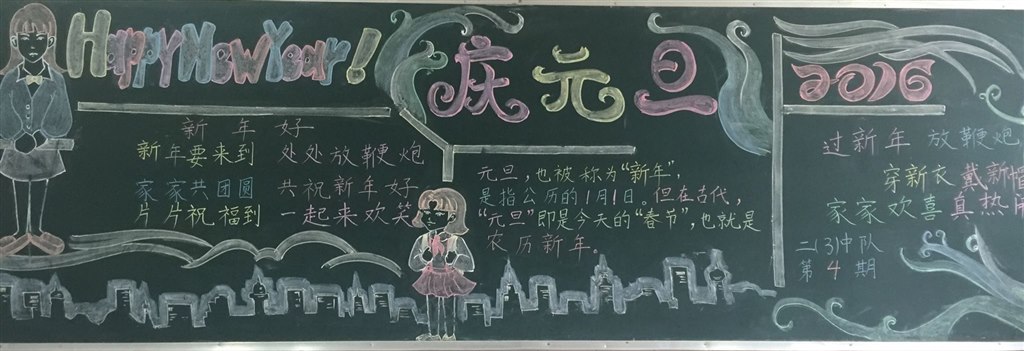 Happy New Year!
新年好
新年要来到 处处放鞭炮
家家共团圆 共祝新年好
片片祝福到 一起来欢笑
庆元旦
元旦，也被称为“新年”，
是指公历的1月1日。但在古代，
“元旦”即是今天的“春节”，也就是
农历新年。
2016
过新年 放鞭炮
穿新衣 戴新帽
家家欢喜 真热闹
二(3)中队
第4期